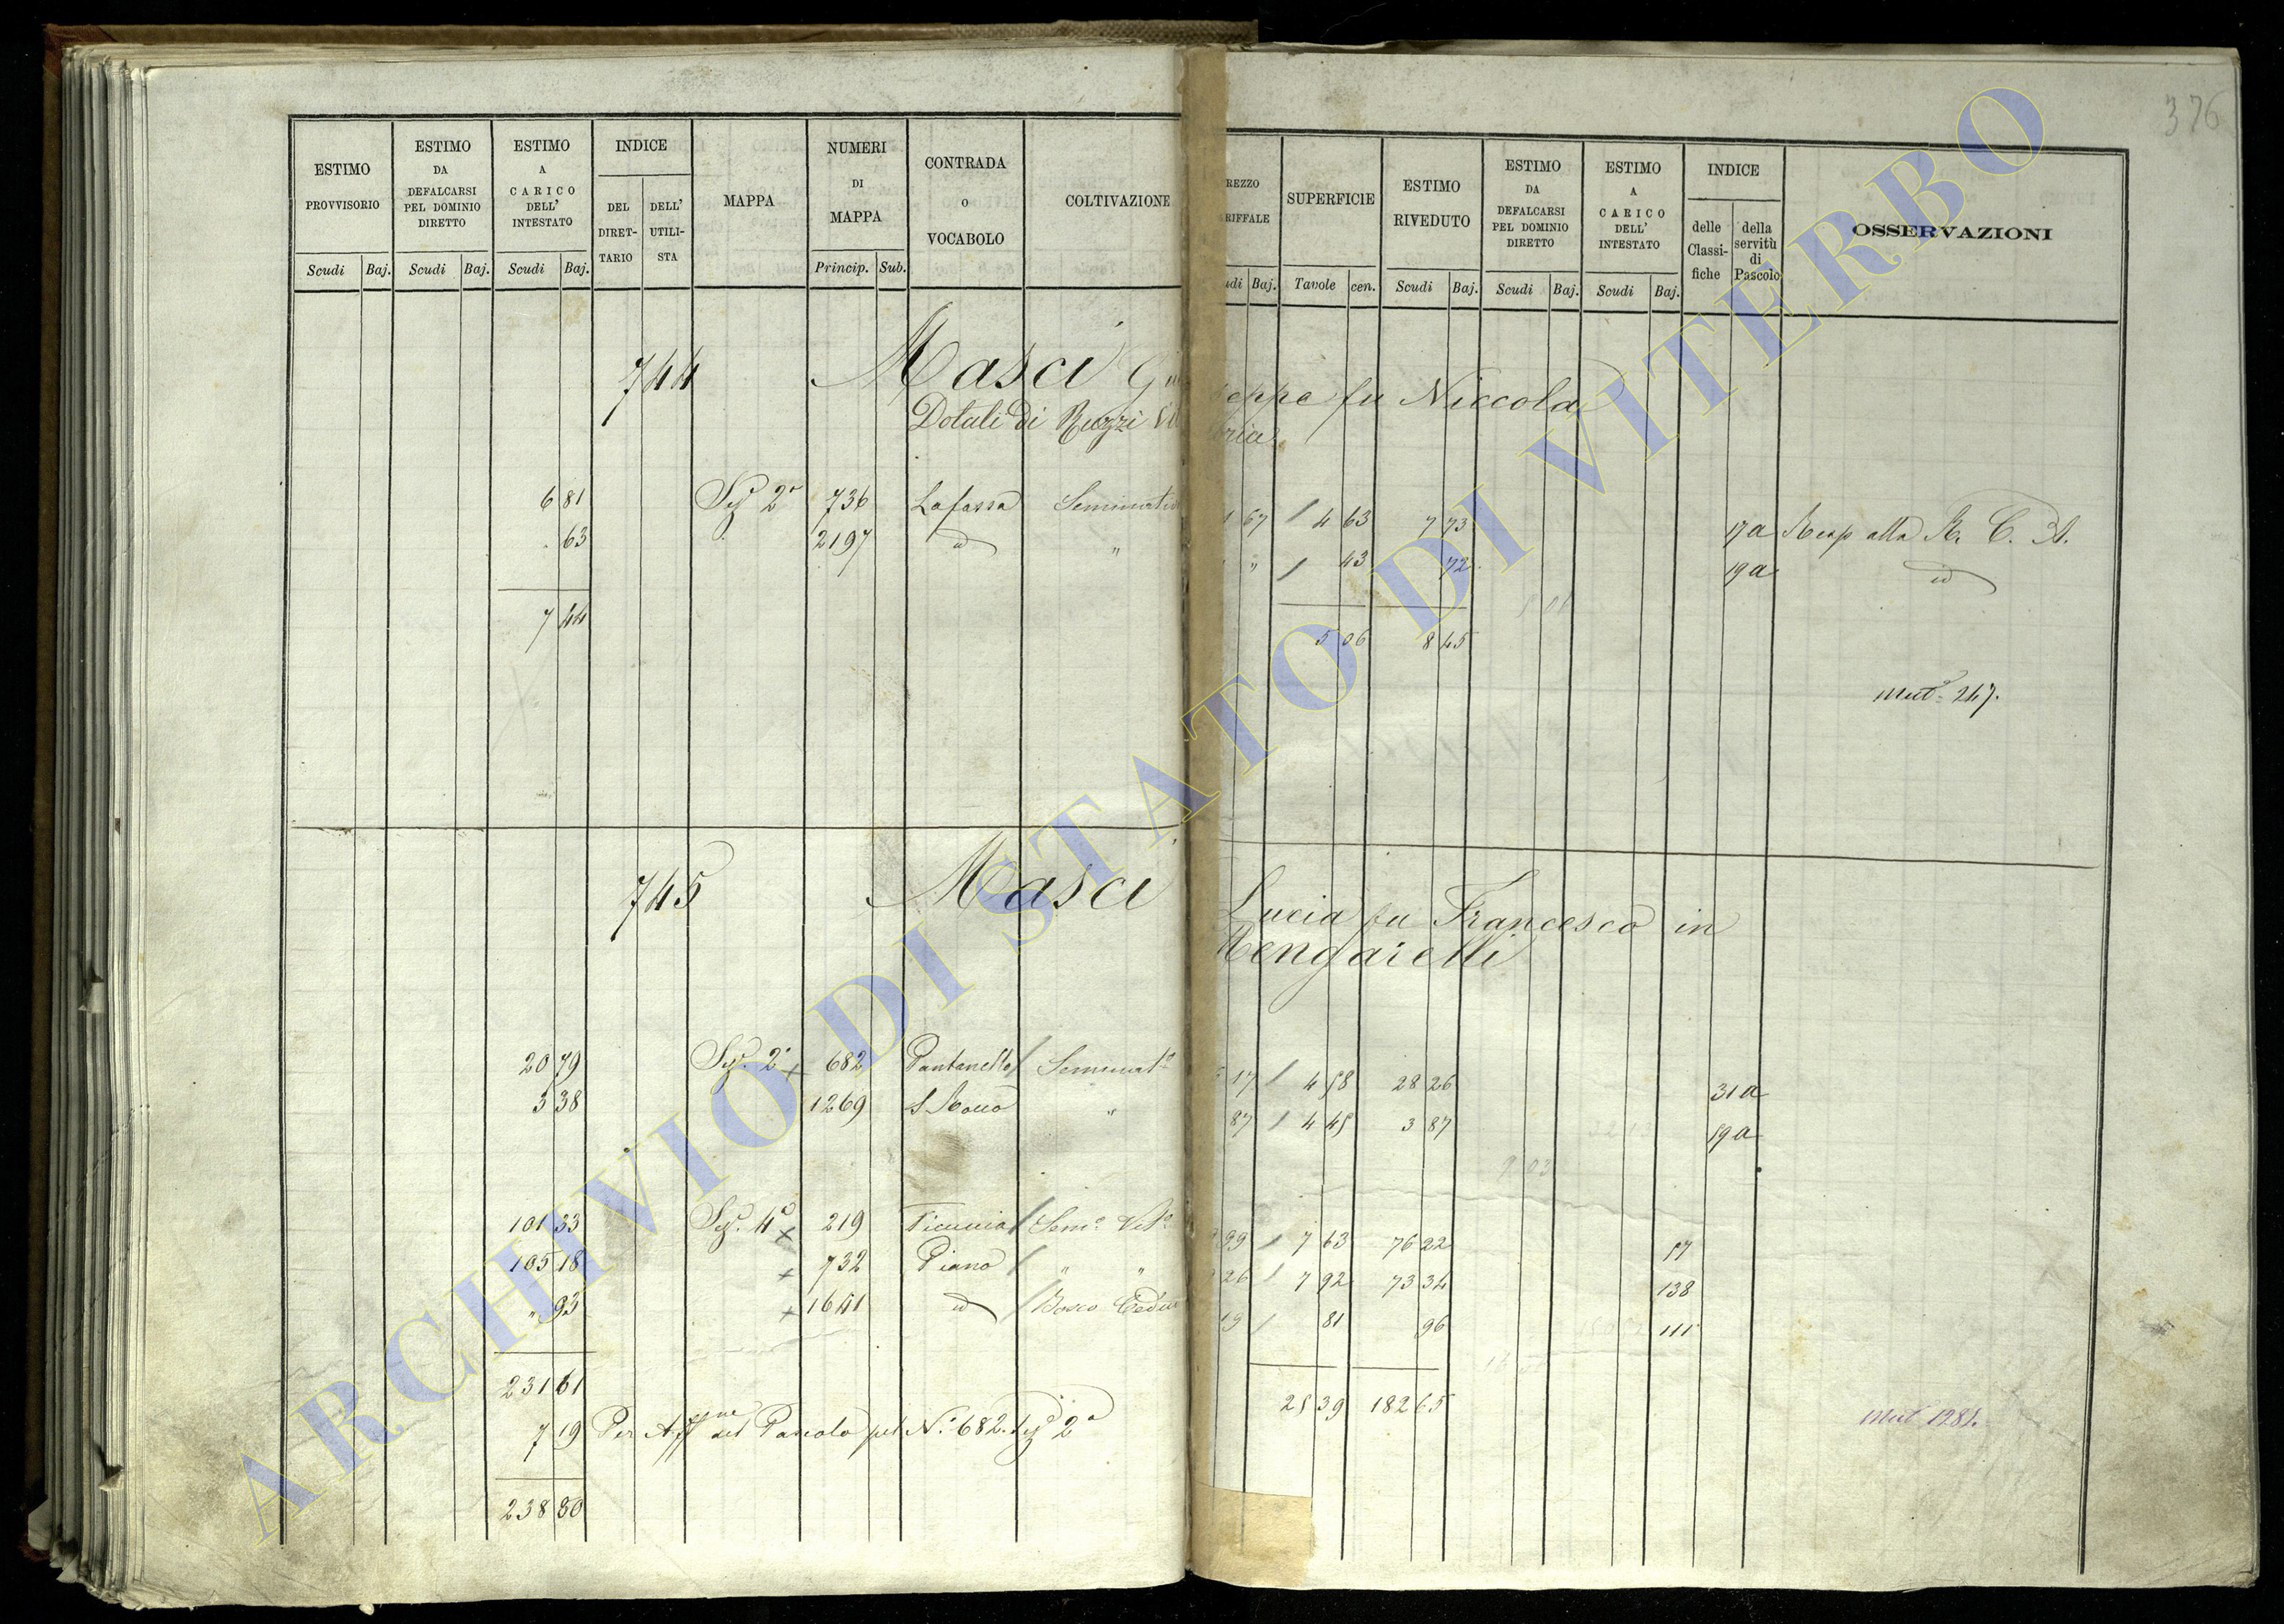 376
ESTIMO PROVVISORIO Scudi Baj.
ESTIMO DA DEFALCARSI PEL DOMINIO DIRETTO Scudi Baj.
ESTIMO A CARICO DELL' INTESTATO Scudi Baj.
INDICE DEL DIRET- TARIO DELL' UTILI- STA
MAPPA
NUMERI DI MAPPA Princip. Sub.
CONTRADA O VOCABOLO
COLTIVAZIONE
REZZO RIFFALE udi Baj.
SUPERFICIE Tavole cen.
ESTIMO RIVEDUTO Scudi Baj.
ESTIMO DA DEFALCARSI PEL DOMINIO DIRETTO Scudi Baj.
ESTIMO A CARICO DELL' INTESTATO Scudi Baj.
INDICE delle Classi- fiche della servitù di Pascolo
OSSERVAZIONI
744 Masci Giu seppe fu Niccola
Dotali di Ruzzi Vit toria
6 81 Sez 2a 736 Lafassa Seminativo 1 67 / 4 63 7 73 17a Resp alla R. C. A.
. 63 2197 id " " / 43 72 19a id
7 44 5 06 8 45
Mut. 247.
745 Masci Lucia fu Francesco in
Mengarelli
20 79 Sez. 2a x 682 Pantanello / Seminato 6 17 / 4 58 28 26 31a
3 38 1269 S. Rocco " 87 / 4 45 3 87 59a
9 03
101 33 Sez. 4a x 219 Ficuccia / Semo Vito 99 / 7 63 76 22 57
105 18 x 732 Piano / " " 26 / 7 92 73 34 138
" 93 x 1641 id / Bosco Ceduo 19 / 81 96 111
231 61 25 39 182 65
7 19 Per Affne del Pascolo pel N. 682. Sez 2a
Mut 1284.
238 80
ARCHIVIO DI STATO DI VITERBO